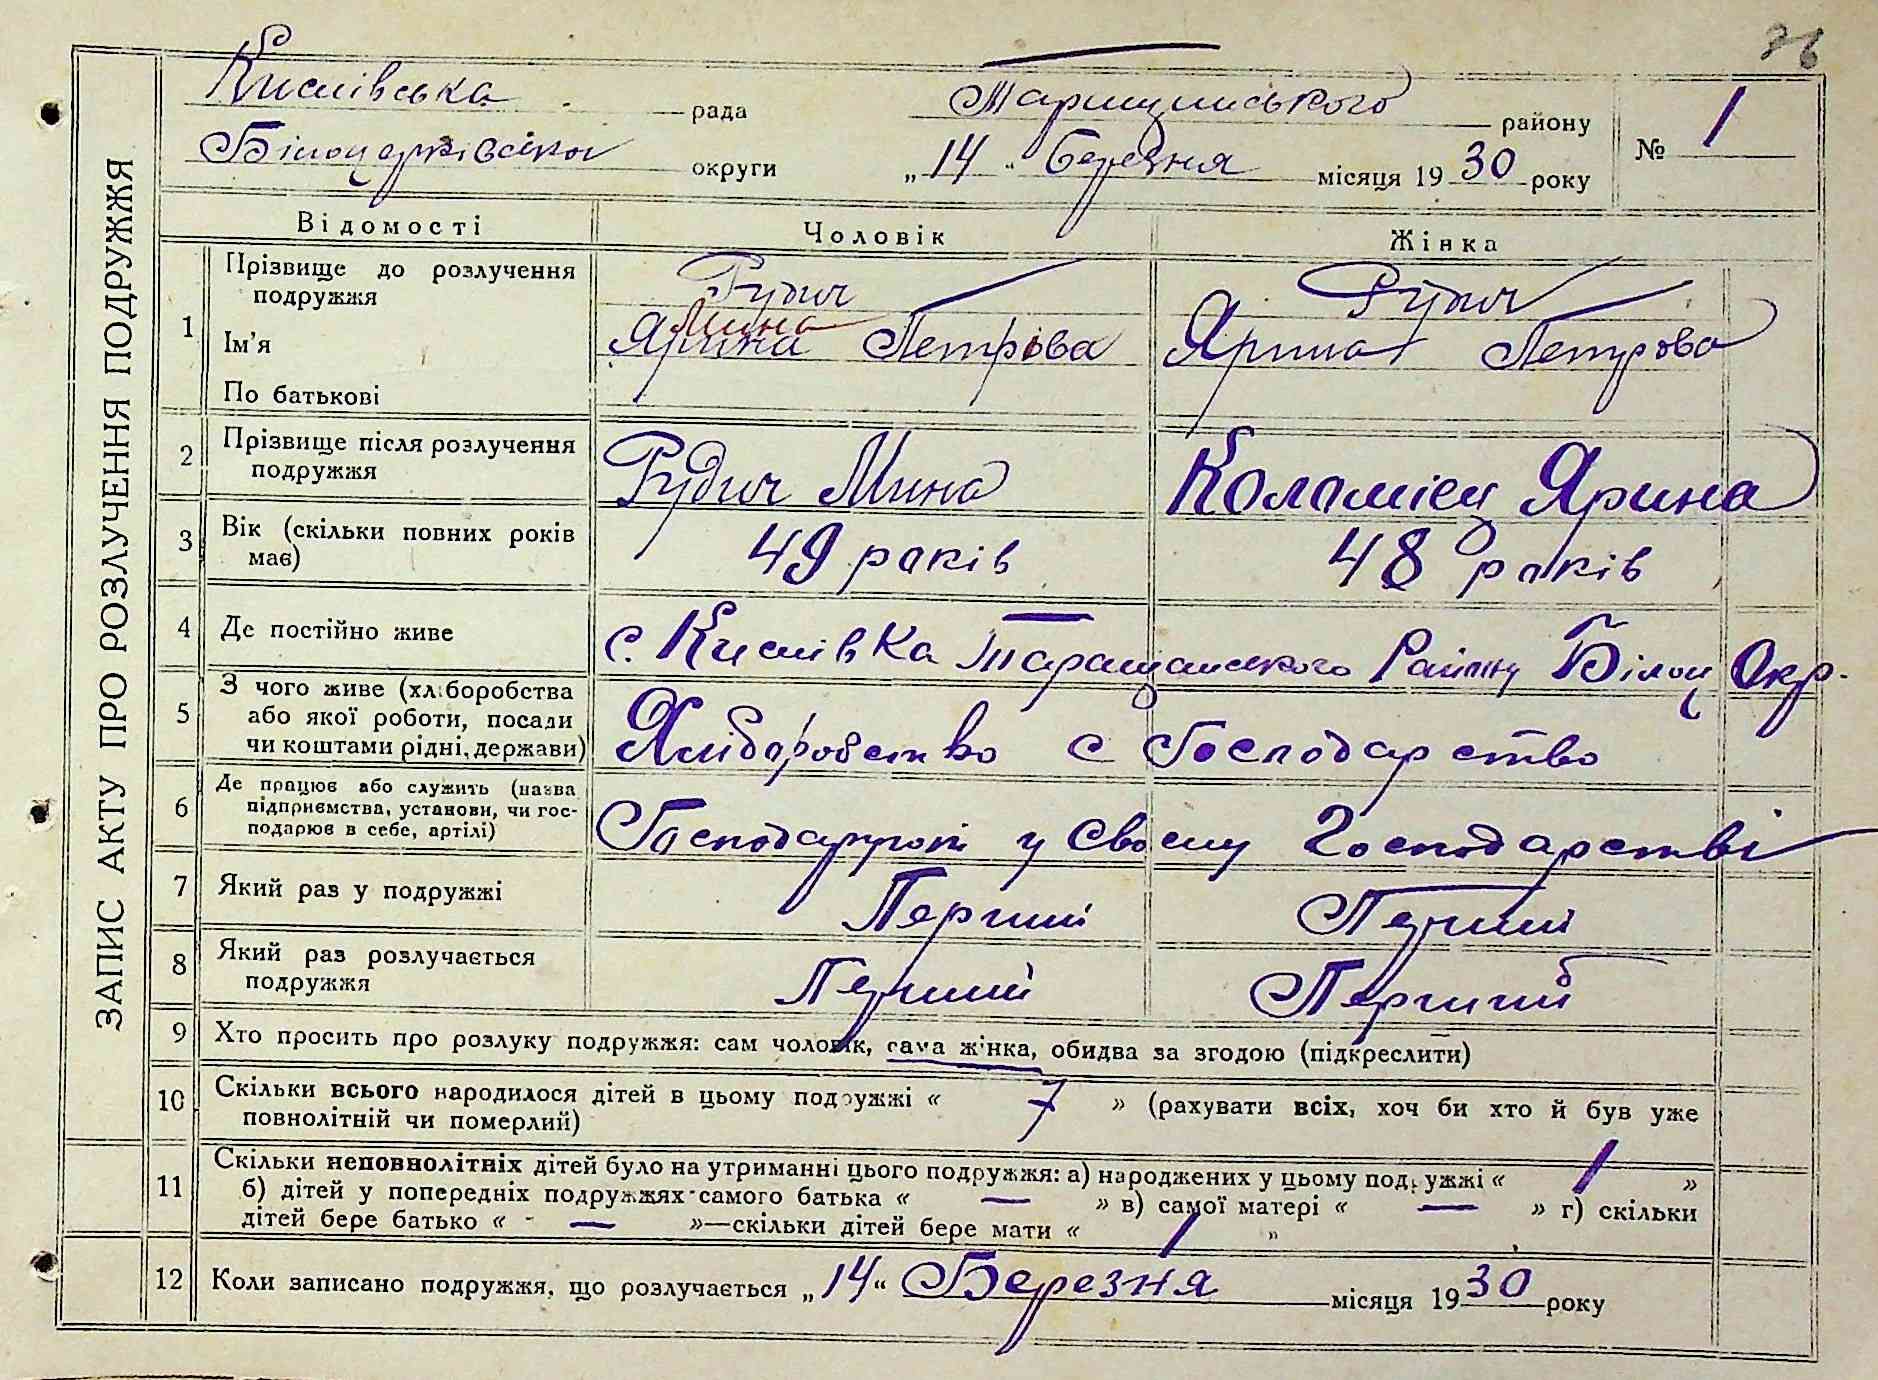 76
Кислівська рада Таращанського району № 1
Білоцерківська округи „14“ березня місяця 1930 року
ЗАПИС АКТУ ПРО РОЗЛУЧЕННЯ ПОДРУЖЖЯ
Відомості Чоловік Жінка
1 Прізвище до розлучення подружжя Рудич Рудич
Мина
Ім'я Ярина Петрова Ярина Петрова
По батькові
2 Прізвище після розлучення Рудич Мина Коломієц Ярина
подружжя
3 Вік (скільки повних років 49 років 48 років
має)
4 Де постійно живе с. Кислівка Таращанського Району Білоц Окр.
5 З чого живе (хліборобства
або якої роботи, посади Хліборобство с Господарство
чи коштами рідні, держави)
6 Де працює або служить (назва
підприємства, установи, чи гос- Господарюют у Своєму Господарстві
подарює в себе, артілі)
7 Який раз у подружжі Перший Перший
8 Який раз розлучається Перший Перший
подружжя
9 Хто просить про розлуку подружжя: сам чоловік, сама жінка, обидва за згодою (підкреслити)
10 Скільки всього народилося дітей в цьому подружжі « 7 » (рахувати всіх, хоч би хто й був уже
повнолітній чи померлий)
11 Скільки неповнолітніх дітей було на утриманні цього подружжя: а) народжених у цьому подружжі « 1 »
б) дітей у попередніх подружжях самого батька « — » в) самої матері « — » г) скільки
дітей бере батько « — »—скільки дітей бере мати « 1 »
12 Коли записано подружжя, що розлучається „14“ Березня місяця 1930 року